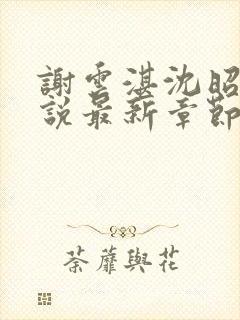 謝雲湛沈昭
說最新章節
荼蘼與花